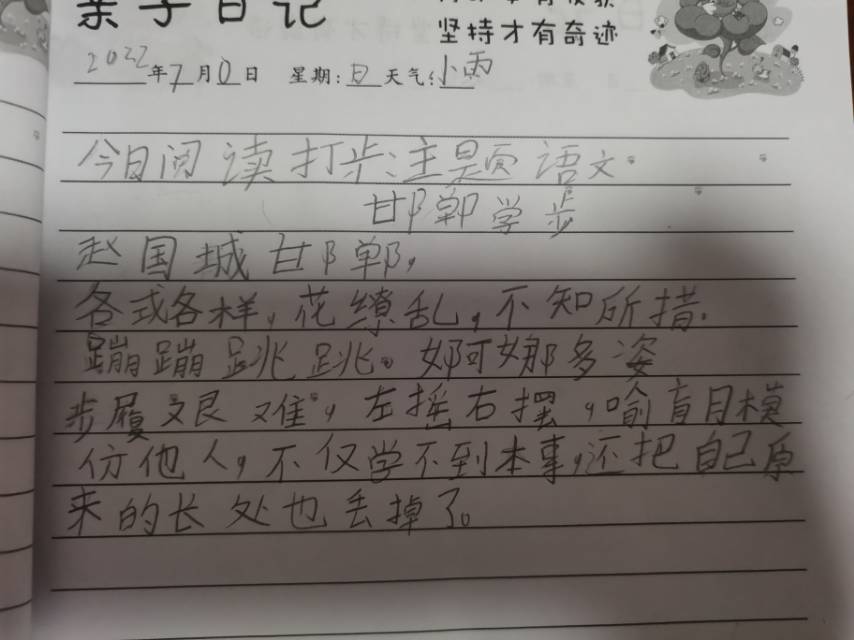 亲子日记
坚持才有奇迹
2022年7月0日 星期:日天气:小雨
今日阅读打步:主题语文。
邯郸学步
赵国城邯郸,
各式各样,花缭乱,不知所措.
蹦蹦跳跳。婀娜多姿
步履艰难,左摇右摆,喻盲目模
仿他人,不仅学不到本事,还把自己原
来的长处也丢掉了。